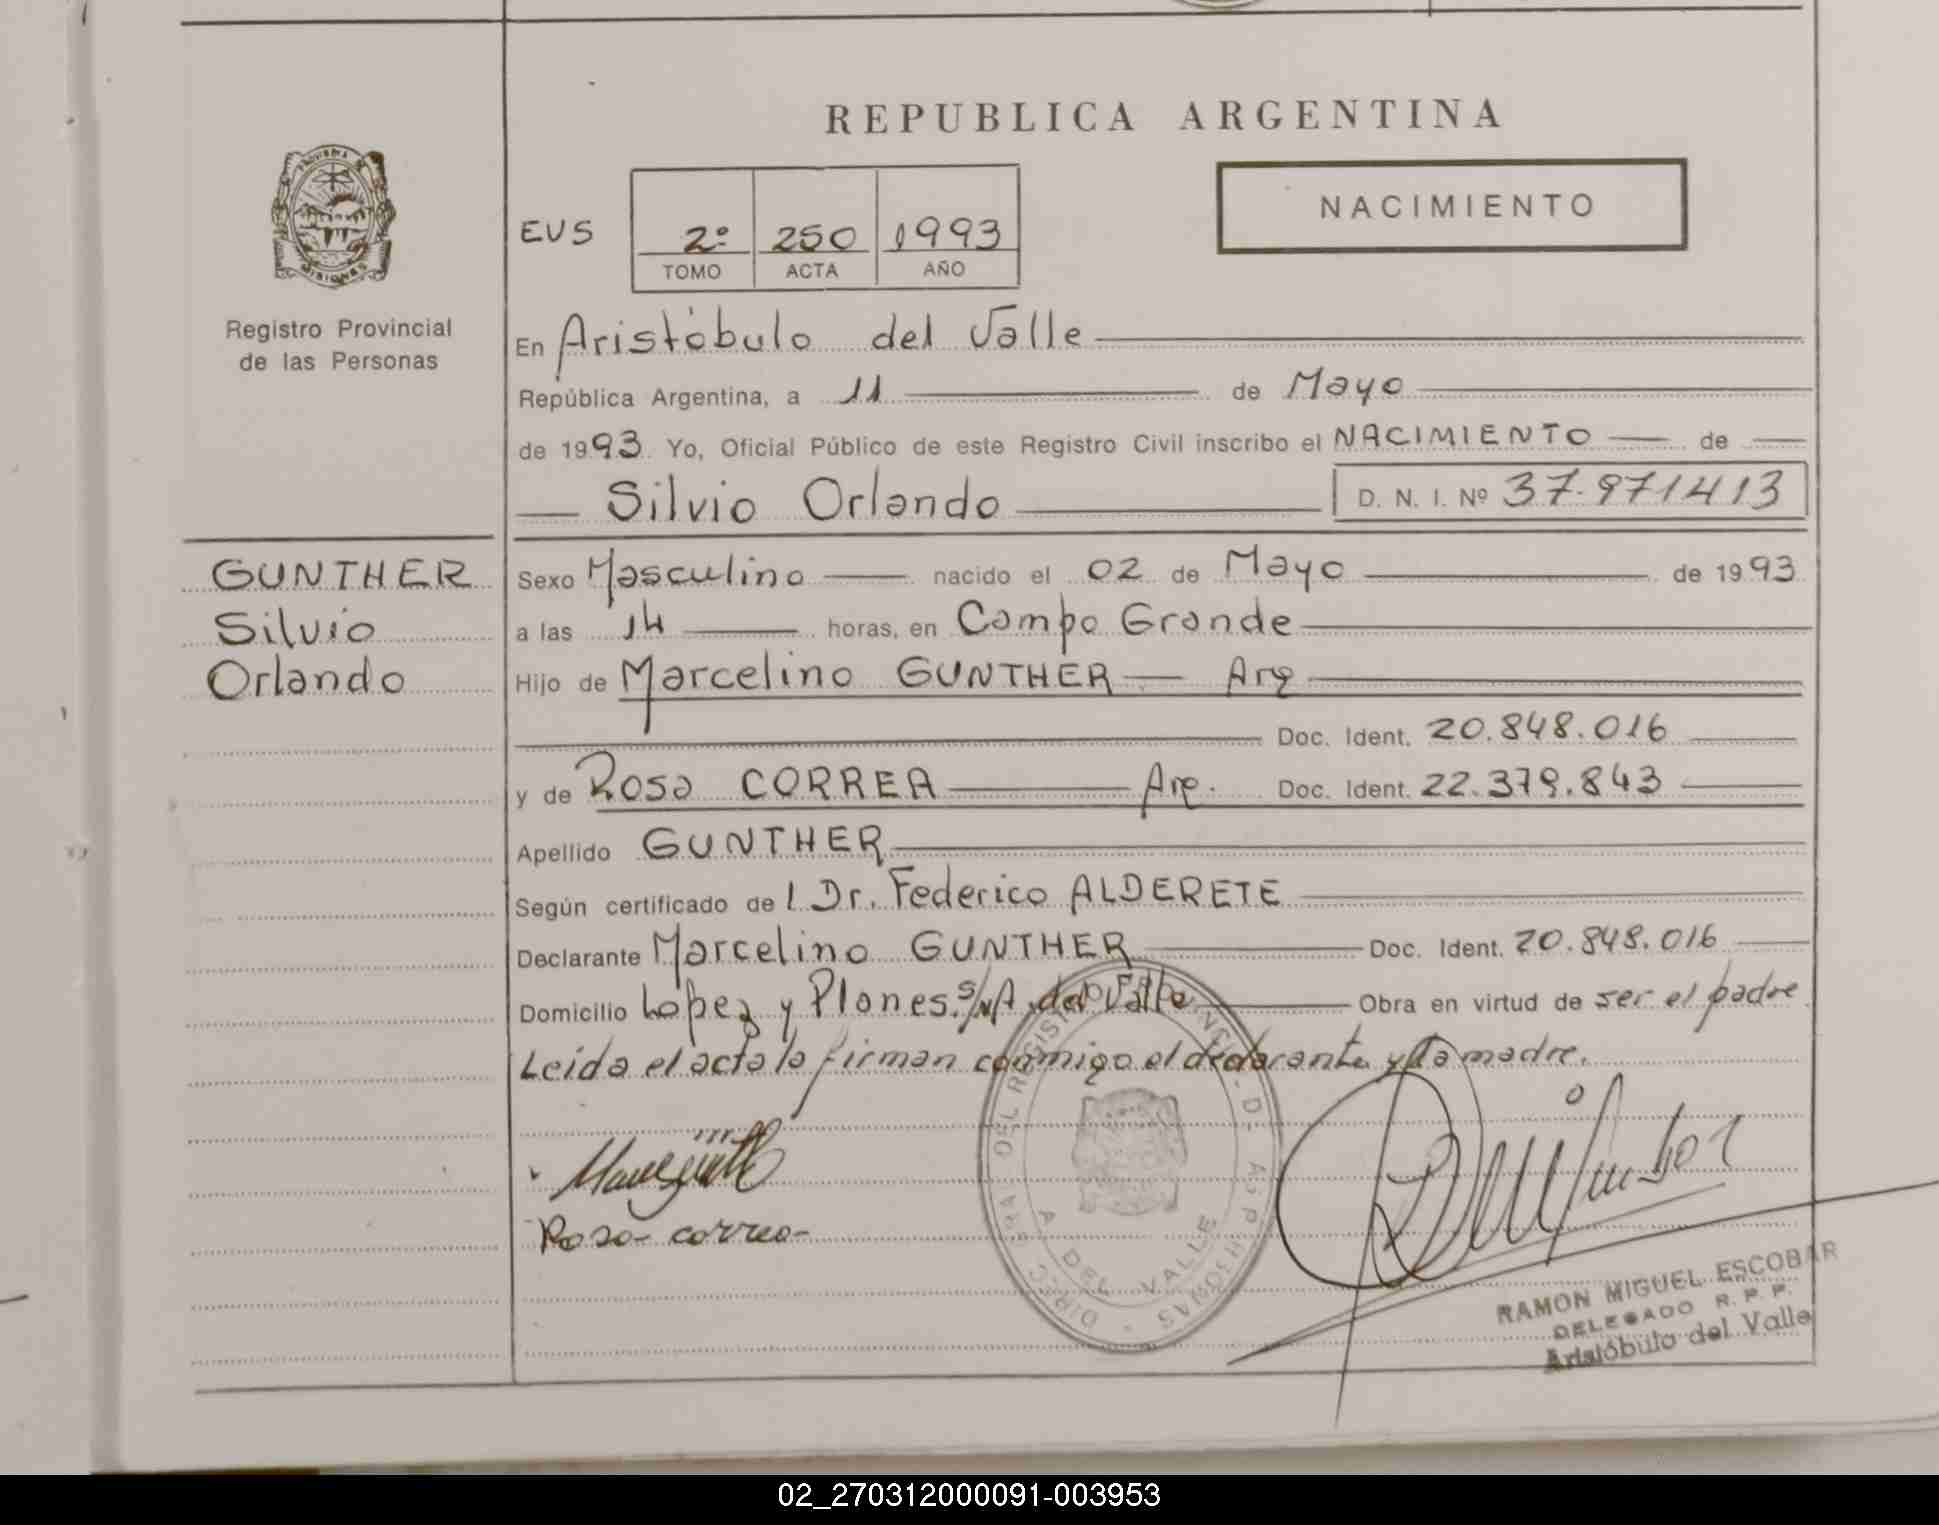 REPUBLICA ARGENTINA
NACIMIENTO
EUS 2º 250 1993
TOMO ACTA AÑO
PROVINCIA DE MISIONES
Registro Provincial
de las Personas
En Aristóbulo del Valle
República Argentina, a 11 de Mayo
de 1993 Yo, Oficial Público de este Registro Civil inscribo el NACIMIENTO de
Silvio Orlando D. N. I. Nº 37.971413
GUNTHER
Silvio
Orlando
Sexo Masculino nacido el 02 de Mayo de 1993
a las 14 horas, en Campo Grande
Hijo de Marcelino GUNTHER Arg
Doc. Ident. 20.848.016
y de Rosa CORREA Arg. Doc. Ident. 22.379.843
Apellido GUNTHER
Según certificado del Dr. Federico ALDERETE
Declarante Marcelino GUNTHER Doc. Ident. 20.848.016
Domicilio Lopez y Planes s/n A. del Valle Obra en virtud de ser el padre
Leida el acta la firman conmigo el declarante y la madre.
Rosa correa
A DEL VALLE
RAMON MIGUEL ESCOBAR
DELEGADO R. P. P.
Aristóbulo del Valle
02_270312000091-003953